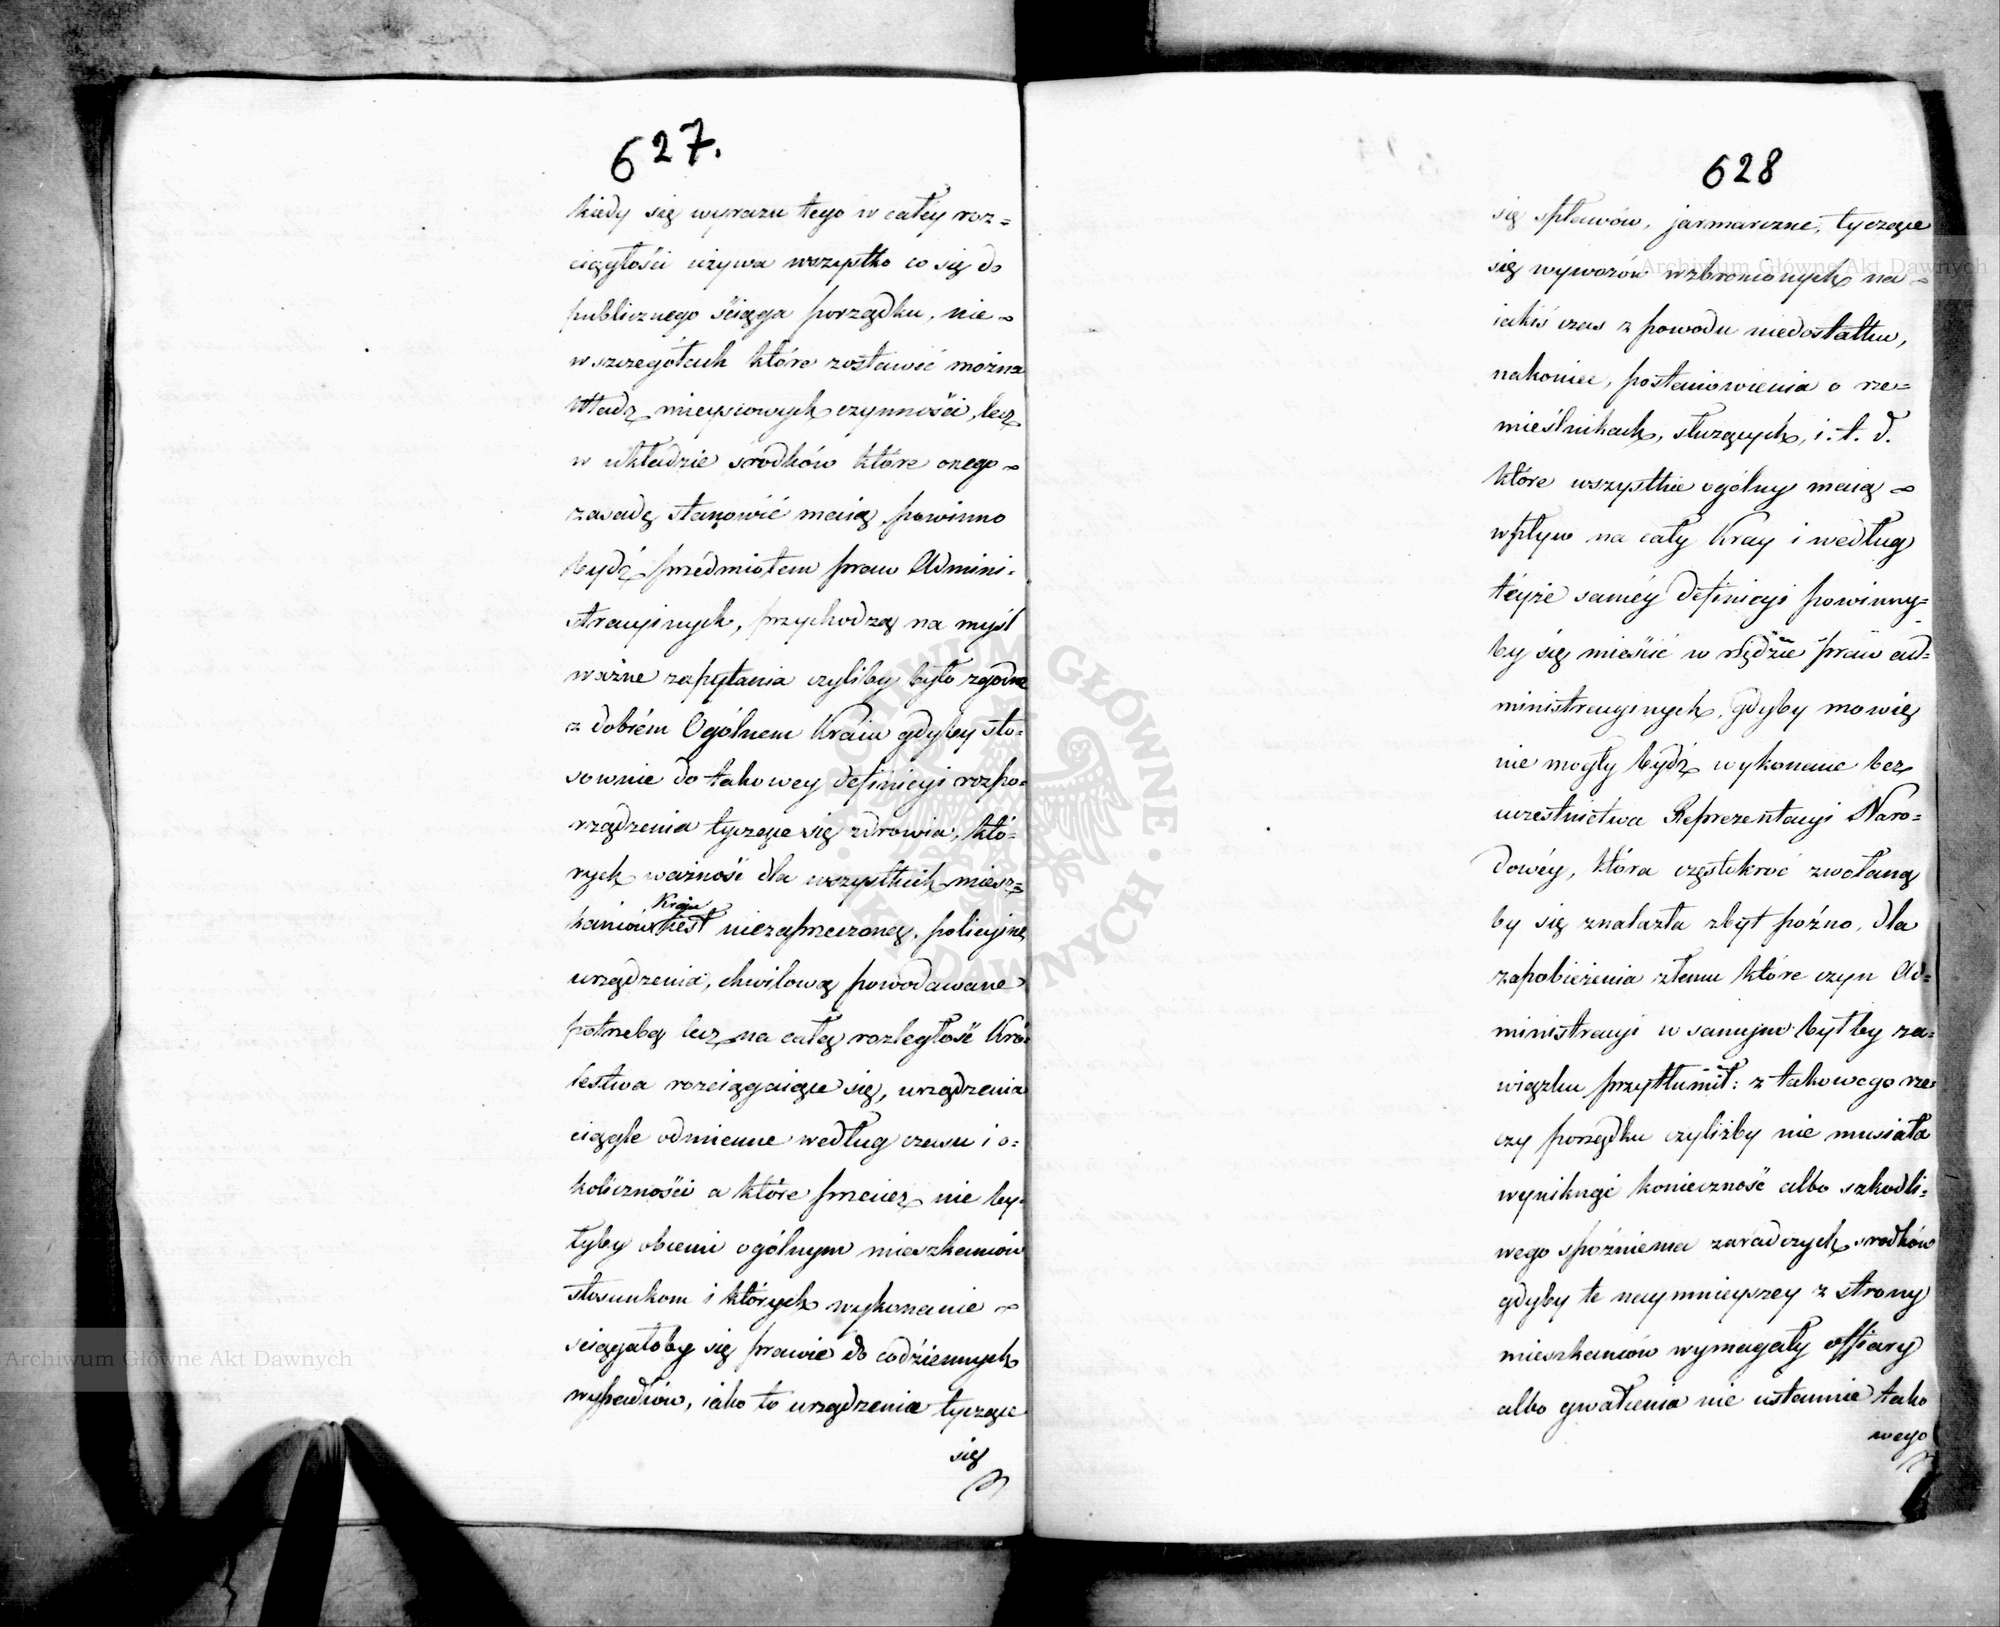 627.
kiedy się wyrazu tego w całéy roz=
ciągłości używa wszystko co się do
publicznego ściąga porządku, nie
w szczegółach które zostawić można
Władz mieyscowych czynności, lecz
w układzie srodków które onego
zasadę stanowić maią, powinno
bydź przédmiotem praw Admini-
stracyinych, przychodzą na myśl
ważne zapytania czyliby było zgodne
z dobrém Ogólnem Kraiu gdyby sto-
sownie do takowey definicyi rozpo-
rządzenia tyczące się zdrowia, któ-
rych ważność dla wszystkich miesz-
kańców Kraju iest niezaprzeczoną, policyine
urządzenia, chwilową powodowane
potrzebą lecz na całą rozległość Kró-
lestwa rozciągaiące się, urządzenia
ciągle odmienne według czasu i o-
koliczności a które przecież nie by-
łyby obcemi ogólnym mieszkańców
stosunkom i których wykonanie
sciągałoby się prawie do codziennych
wypadków, iako to urządzenia tyczące
się
628
się spławów, jarmarczne, tyczące
się wywozów wzbronionych na
iakiś czas z powodu niedostatku,
nakoniec, postanowienia o rze=
mieślnikach, służących, i. t. d.
które wszystkie ogólny maią
wpływ na cały Kray i według
téyże saméy definicyi powinny=
by się mieścić w rzędzie praw ad=
ministracyinych, gdyby mowię
nie mogły bydź wykonane bez
uczestnictwa Reprezentacyi Naro=
dowéy, która częstokroć zwołaną
by się znalazła zbyt poźno, dla
zapobieżenia złemu które czyn Ad=
ministracyi w samym byłby za=
wiązku przytłumił: z takowego rze
czy porządku czyliżby nie musiała
wyniknąć konieczność albo szkodli=
wego spoźnienia zaradczych srodków
gdyby te naymnieyszey z strony
mieszkańców wymagały offiary
albo gwałcenia nie ustannie tako
wego
Archiwum Główne Akt Dawnych
Archiwum Główne Akt Dawnych
ARCHIWUM GŁÓWNE · AKT DAWNYCH ·